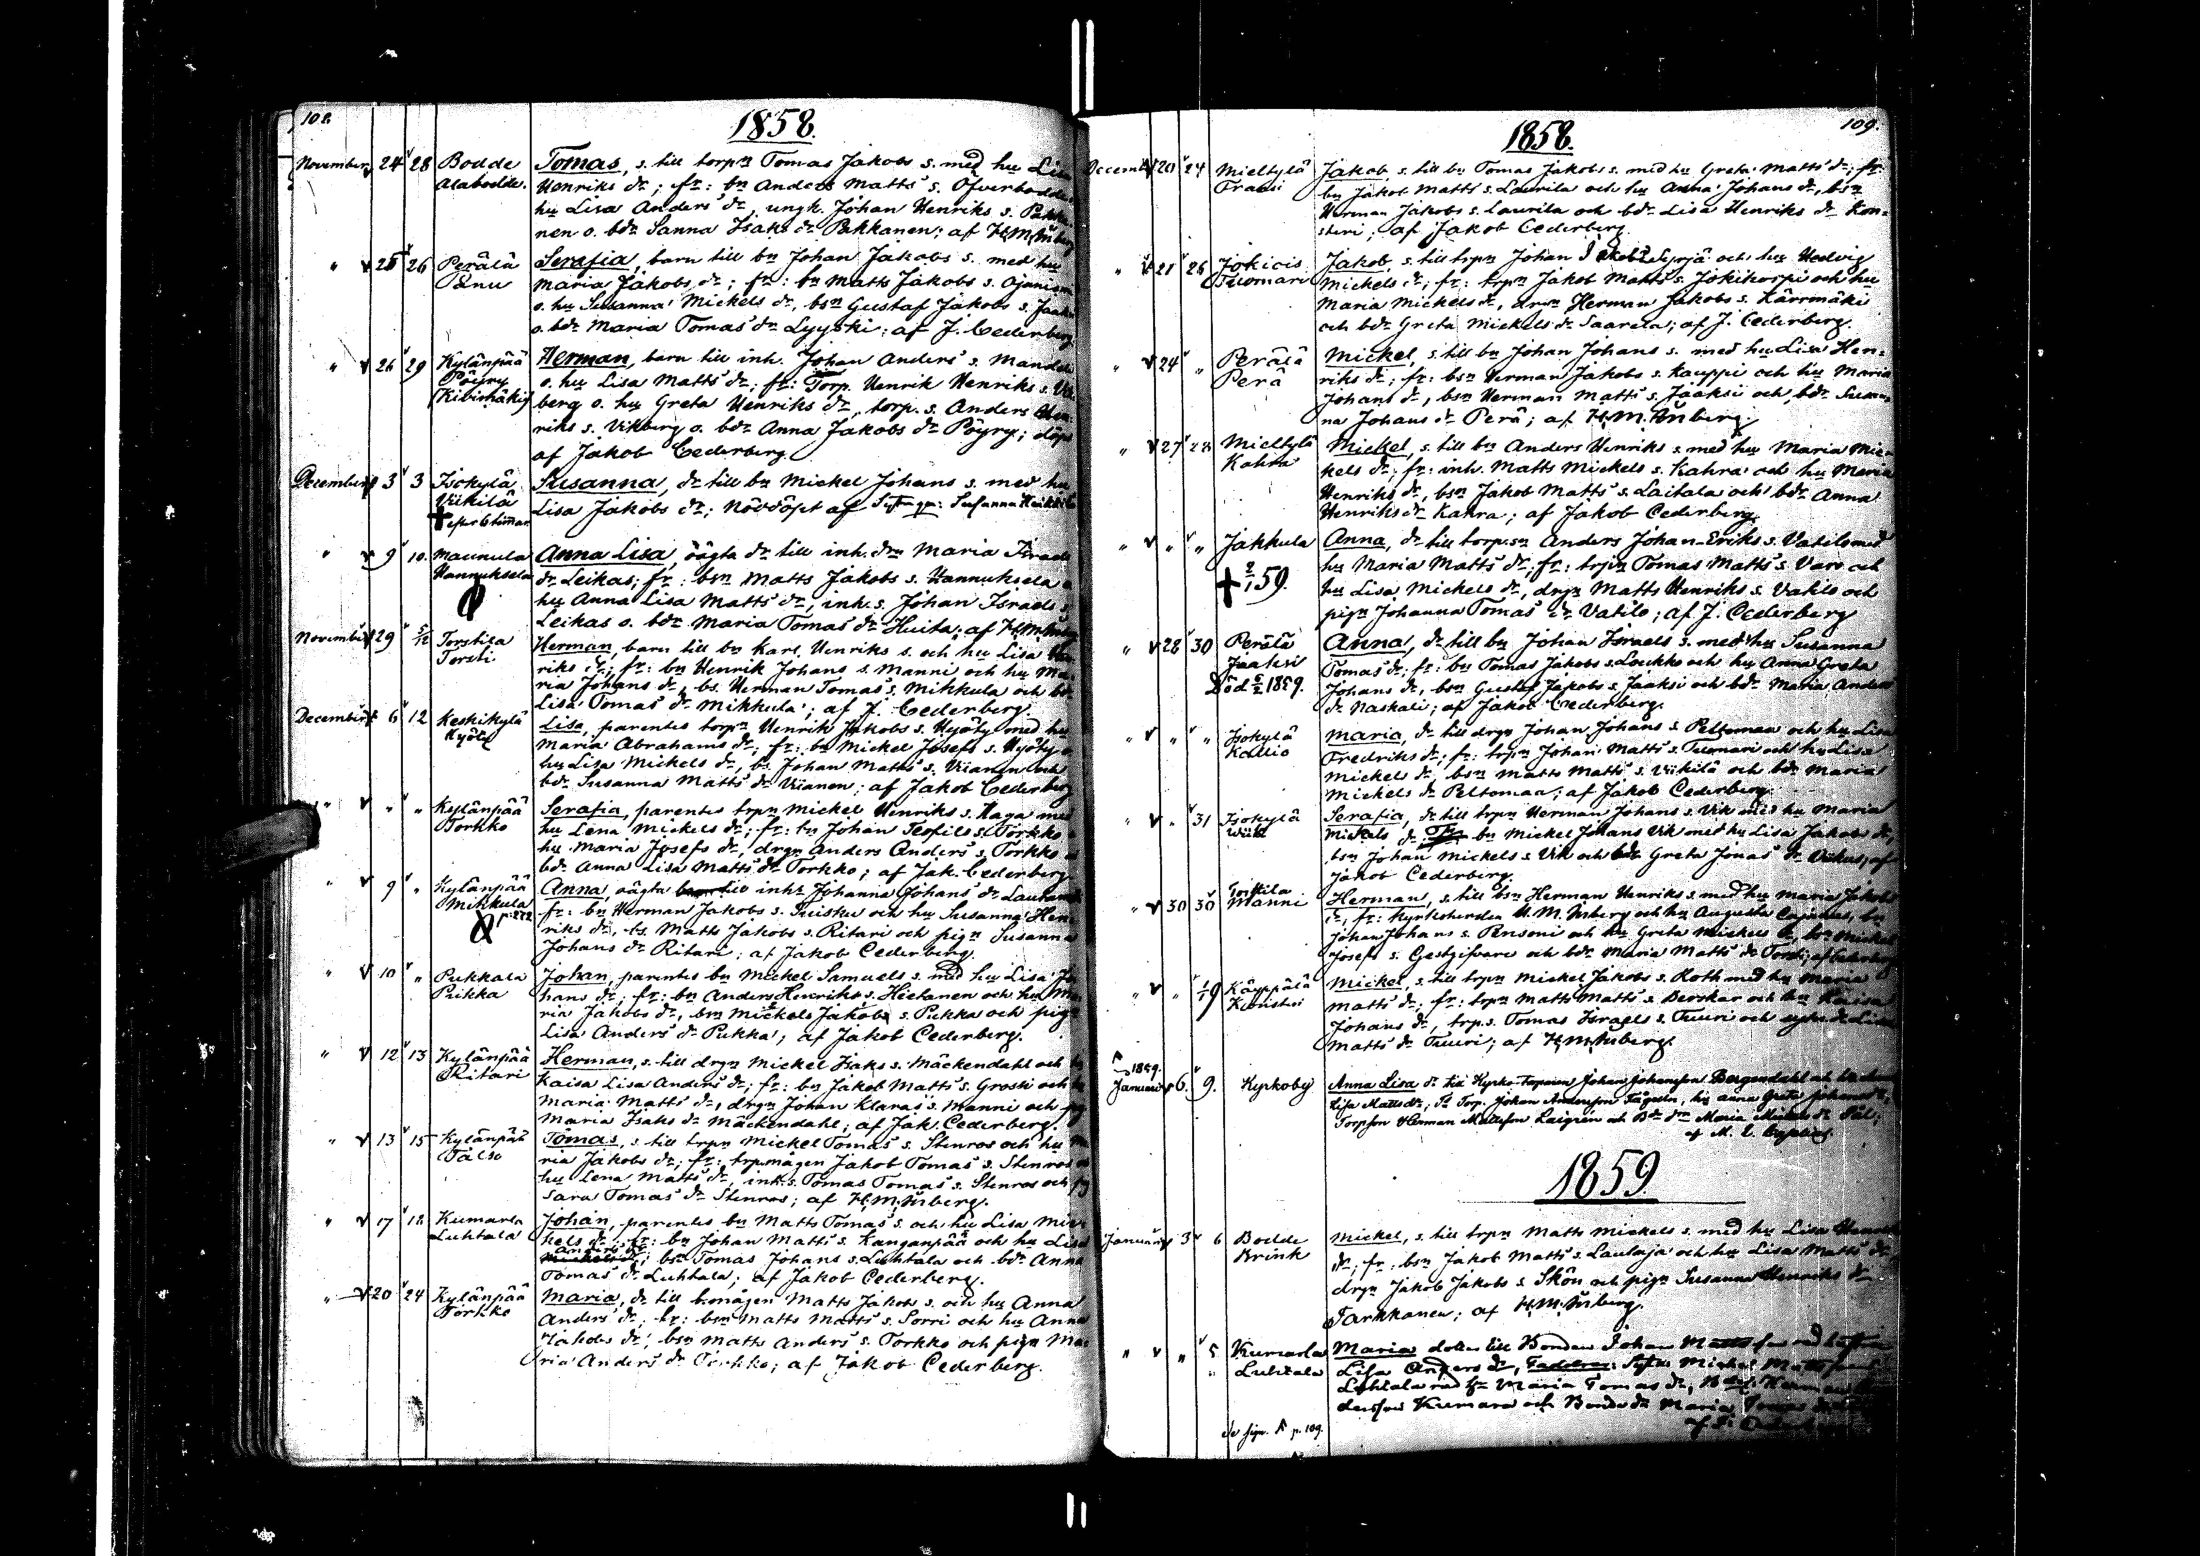 108.
1858.
November 24 28 Bodde Tomas, s. till torpn Tomas Jakobs s. med hu Lisa
Alabodde. Henriks dr; fr: bn Anders Matts s. Öfverbodde
hu Lisa Anders dr, ungk. Johan Henriks s. Pakka-
nen o. bdr Sanna Isaks dr Pakkanen; af
" 25 26 Perälä Serafia, barn till bn Johan Jakobs s. med hu
Panu Maria Jakobs dr; fr: bn Matts Jakobs s. Ojaniemi
o. hu Susanna Mickels dr, bsn Gustaf Jakobs s. Jaaksi
o. bdr Maria Tomas dr Lyyski; af J. Cederberg
" 26 29 Kylänpää Herman, barn till inh. Johan Anders s. Mandel
Pöyry o. hu Lisa Matts dr; fr: Torp. Henrik Henriks s. Vik-
berg o. hu Greta Henriks dr, torp. s. Anders Hen-
riks s. Vikberg o. bdr Anna Jakobs dr Pöyry; döpt
af Jakob Cederberg
December 3 3 Isokylä Susanna, dr till bn Mickel Johans s. med hu
Viikilä Lisa Jakobs dr; Nöddöpt af Susanna
" 9 10. Maunula Anna Lisa, oägta dr till inh. drn Maria Israels
Hannuksela dr Leikas; fr: bsn Matts Jakobs s. Hannuksela o
hu Anna Lisa Matts dr, inh. s. Johan Israels s.
Leikas o. bdr Maria Tomas dr Huita; af
November 29 5/12 Torstila Herman, barn till bn Karl Henriks s. och hu Lisa Hen-
Torsti riks dr; fr: bn Henrik Johans s. Manni och hu Ma-
ria Johans dr, bs. Herman Tomas s. Mikkula och bdr
Lisa Tomas dr Mikkula; af J. Cederberg.
December 6 12 Keskikylä Lisa, parentes torpn Henrik Jakobs s. Hyöty med hu
Hyöty Maria Abrahams dr; fr: bn Mickel Josefs s. Hyöty o
hu Lisa Mickels dr, bs. Johan Matts s. Viianen och
bdr Susanna Matts dr Viianen; af Jakob Cederberg
" " " Kylänpää Serafia, parentes trpn Mickel Henriks s. Haga med
Torkko hu Lena Mickels dr; fr: bn Johan Teofils s. Torkko o
hu Maria Josefs dr, drgn Anders Anders s. Torkko o
bdr Anna Lisa Matts dr Torkko; af Jak. Cederberg
" 9 " Kylänpää Anna, oägta till inhr Johanna Johans dr
Mikkula fr: bn Herman Jakobs s. Suisku och hu Susanna Hen-
riks dr, bs. Matts Jakobs s. Ritari och pign Susanna
Johans dr Ritari; af Jakob Cederberg.
" 10 " Pukkala Johan, parentes bn Mickel Samuels s. med hu Lisa Jo-
Pukka hans dr; fr: bn Anders Henriks s. Hietanen och hu Ma-
ria Jakobs dr, bsn Mickels Jakobs s. Pukka och pign
Lisa Anders dr Pukka; af Jakob Cederberg.
" 12 13 Kylänpää Herman, s. till drgn Mickel Isaks s. Mäckendahl och hu
Ritari Kaisa Lisa Anders dr; fr: bn Jakob Matts s. Grosti och hu
Maria Matts dr, drgn Johan Klaras s. Manni och pg
Maria Isaks dr Mäckendahl; af Jak. Cederberg.
" 13 15 Kylänpää Tomas, s. till trpn Mickel Tomas s. Stenros och hu Ma-
Talso ria Jakobs dr; fr: trpmågen Jakob Tomas s. Stenros o
hu Lena Matts dr, inh. s. Tomas Tomas s. Stenros och pg
Sara Tomas dr Stenros; af
" 17 18 Kumarla Johan, parentes bn Matts Tomas s. och hu Lisa Mic-
Luhtala kels dr; fr: bn Johan Matts s. Kanganpää och hu Lisa
Anders dr; bsn Tomas Johans s. Luhtala och bdr Anna
Tomas dr Luhtala; af Jakob Cederberg.
" 20 24 Kylänpää Maria, dr till b.mågen Matts Jakobs s. och hu Anna
Torkko Anders dr; fr: bsn Matts Matts s. Sorri och hu Anna
Jakobs dr, bsn Matts Anders s. Torkko och pign Ma-
ria Anders dr Torkko; af Jakob Cederberg.
109.
1858.
December 20 24 Mieltylä Jakob, s. till bn Tomas Jakobs s. med hu Greta Matts dr; fr:
Fraasi bn Jakob Matts s. Laurila och hu Anna Johans dr, bsn
Herman Jakobs s. Laurila och bdr Lisa Henriks dr Kon-
steri; af Jakob Cederberg.
" 21 26 Jokicis Jakob, s. till trpn Johan Jakobs Seppä och hu Hedvig
Tuomari Mickels dr; fr: trpn Jakob Matts s. Jokikorpi och hu
Maria Mickels dr, drgn Herman Jakobs s. Kärrmäki
och bdr Greta Mickels dr Saarela; af J. Cederberg.
" 24 " Perälä Mickel, s. till bn Johan Johans s. med hu Lisa Hen-
Perä riks dr; fr: bsn Herman Jakobs s. Kauppi och hu Maria
Johans dr, bsn Herman Matts s. Jaaksi och bdr Susan-
na Johans dr Perä; af
" 27 28 Mieltylä Mickel, s. till bn Anders Henriks s. med hu Maria Mic-
Kahra kels dr; fr: inh. Matts Mickels s. Kahra och hu Maria
Henriks dr, bsn Jakob Matts s. Laitala och bdr Anna
Henriks dr Kahra; af Jakob Cederberg.
" " " Jakkula Anna, dr till torp.sn Anders Johan-Eriks s. Vatilo med
† 2/1 59. hu Maria Matts dr; fr: trpn Tomas Matts s. Varo och
hu Lisa Mickels dr, drgn Matts Henriks s. Vatilo och
pign Johanna Tomas dr Vatilo; af J. Cederberg
" 28 30 Perälä Anna, dr till bn Johan Israels s. med hu Susanna
Jaaksi Tomas dr; fr: bn Tomas Jakobs s. Loukko och hu Anna Greta
Död 5/2 1859. Johans dr, bsn Gustaf Jakobs s. Jaaksi och bdr Maria Anders
dr Naskali; af Jakob Cederberg.
" " " Isokylä Maria, dr till drgn Johan Johans s. Peltomaa och hu Lisa
Kallio Fredriks dr; fr: trpn Johan Matts s. Tuomari och hu Lisa
Mickels dr, bsn Matts Matts s. Viikilä och bdr Maria
Mickels dr Peltomaa; af Jakob Cederberg.
" " 31 Isokylä Serafia, dr till trpn Herman Johans s. Vik med hu Maria
Mickels dr; bn Mickel Johans Vik med hu Lisa Jakobs dr,
bsn Johan Mickels s. Vik och bdr Greta Jonas dr af
Jakob Cederberg.
" 30 30 Torstila Herman, s. till bsn Herman Henriks s. med hu Maria Jakobs
Manni dr, fr: Kyrkoherden och hu Augusta bn
Johan Johans s. Pensoni och hu Greta Mickels dr, bsn Mickel
Josefs s. Gestgifvare och bdr Maria Matts dr Torsti;
" " 1/1 9 Käyppälä Mickel, s. till trpn Mickel Jakobs s. Roth med hu Maria
Konsteri Matts dr; fr: trpn Matts Matts s. och hu Kaisa
Johans dr, trp.s. Tomas Israels s. Tuuri och Lisa
Matts dr Tuuri; af
1859.
Januari 6. 9. Kyrkoby Anna Lisa dr till Johan Johansson Bergendahl och
Lisa Matts dr, Torp. Johan Andersson hu Anna Greta Johans dr,
Torpson Herman Mattsson och Maria
1859.
Januari 3 6 Bodde Mickel, s. till trpn Matts Mickels s. med hu Lisa Henriks
Brink dr; fr: bsn Jakob Matts s. Laulaja och hu Lisa Matts dr
drgn Jakob Jakobs s. Skön och pign Susanna Henriks dr
Tarkkanen; af
" " 5 Kumarla Maria dotter till Bonden Johan Mattsson
" Luhtala Lisa Anders dr, Mickel Mattsson
Luhtala med hu Maria Tomas dr,
Kumara och Bonde dr Maria Tomas
p. 109.